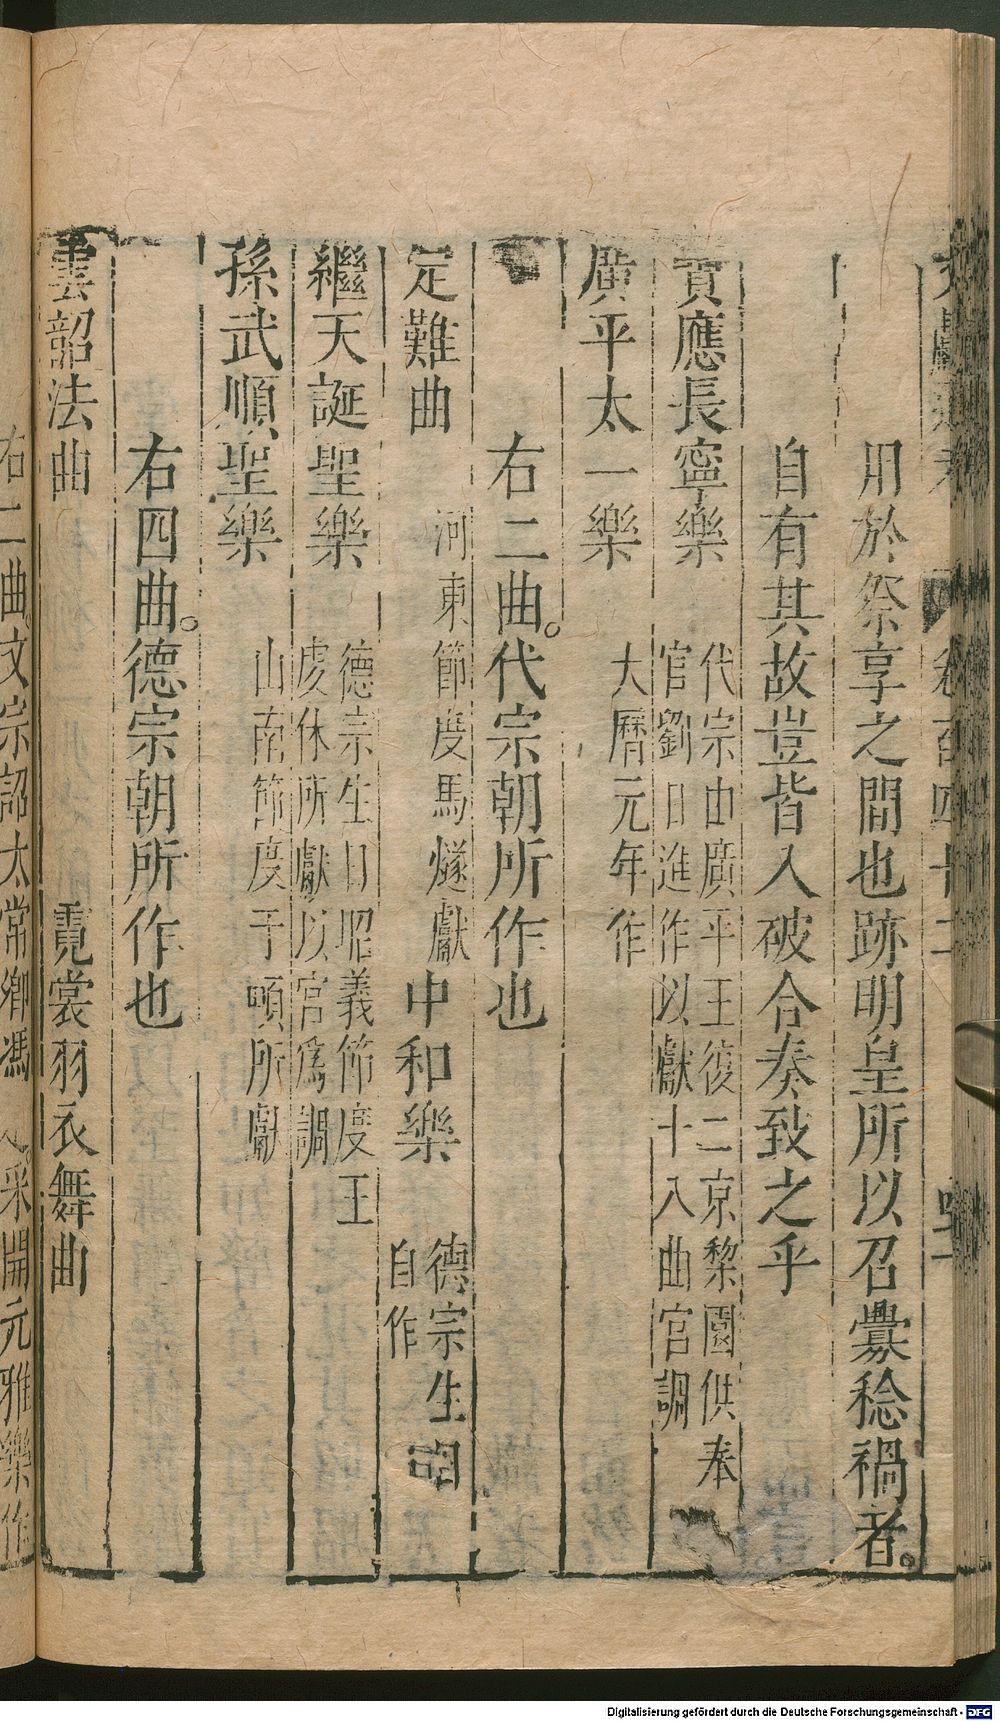 卷百四十二
用於祭享之間也跡明皇所以召釁稔禍者。
自有其故豈皆入破合奏致之乎
寶應長寧樂 代宗由廣平王復二京黎園供奉
官劉日進作以獻十八曲宮調
廣平太一樂 大曆元年作
右二曲。代宗朝所作也
定難曲 河東節度馬燧獻 中和樂 德宗生日
自作
繼天誕聖樂 德宗生日昭義節度王
虔休所獻以宮爲調
孫武順聖樂 山南節度于頔所獻
右四曲。德宗朝所作也
雲韶法曲 霓裳羽衣舞曲
右二曲文宗詔太常卿馮采開元雅樂作
Digitalisierung gefördert durch die Deutsche Forschungsgemeinschaft - DFG